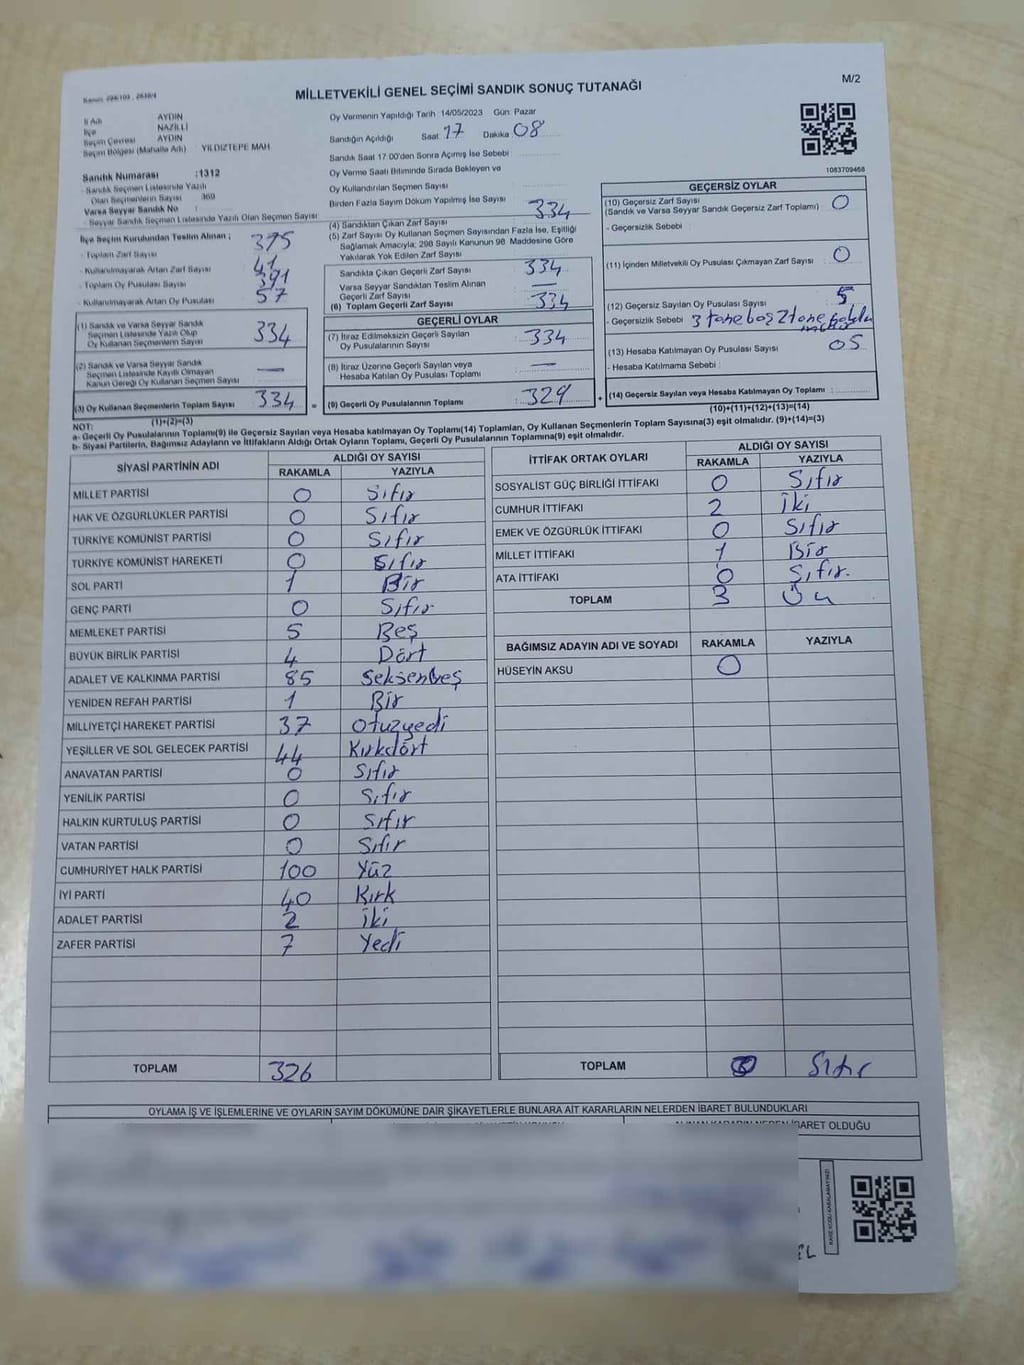 MİLLETVEKİLİ GENEL SEÇİMİ SANDIK SONUÇ TUTANAĞI
M/2
İl Adı AYDIN
İlçe NAZİLLİ
Seçim Çevresi AYDIN
Seçim Bölgesi (Mahalle Adı) YILDIZTEPE MAH
Sandık Numarası :1312
- Sandık Seçmen Listesinde Yazılı
Olan Seçmenlerin Sayısı 369
Varsa Seyyar Sandık No :
- Seyyar Sandık Seçmen Listesinde Yazılı Olan Seçmen Sayısı
İlçe Seçim Kurulundan Teslim Alınan ;
- Toplam Zarf Sayısı 375
- Kullanılmayarak Artan Zarf Sayısı 41
- Toplam Oy Pusulası Sayısı 391
- Kullanılmayarak Artan Oy Pusulası 57
(1) Sandık ve Varsa Seyyar Sandık
Seçmen Listesinde Yazılı Olup
Oy Kullanan Seçmenlerin Sayısı 334
(2) Sandık ve Varsa Seyyar Sandık
Seçmen Listesinde Kayıtlı Olmayan
Kanun Gereği Oy Kullanan Seçmen Sayısı —
(3) Oy Kullanan Seçmenlerin Toplam Sayısı 334
(1)+(2)=(3)
Oy Vermenin Yapıldığı Tarih 14/05/2023 Gün Pazar
Sandığın Açıldığı Saat 17 Dakika 08
Sandık Saat 17:00'den Sonra Açmış İse Sebebi :
Oy Verme Saati Bitiminde Sırada Bekleyen ve
Oy Kullandırılan Seçmen Sayısı :
Birden Fazla Sayım Döküm Yapılmış İse Sayısı :
(4) Sandıktan Çıkan Zarf Sayısı 334
(5) Zarf Sayısı Oy Kullanan Seçmen Sayısından Fazla İse, Eşitliği
Sağlamak Amacıyla; 298 Sayılı Kanunun 98 Maddesine Göre
Yakılarak Yok Edilen Zarf Sayısı
Sandıkta Çıkan Geçerli Zarf Sayısı 334
Varsa Seyyar Sandıktan Teslim Alınan
Geçerli Zarf Sayısı —
(6) Toplam Geçerli Zarf Sayısı 334
GEÇERLİ OYLAR
(7) İtiraz Edilmeksizin Geçerli Sayılan
Oy Pusulalarının Sayısı 334
(8) İtiraz Üzerine Geçerli Sayılan veya
Hesaba Katılan Oy Pusulası Toplamı —
= (9) Geçerli Oy Pusulalarının Toplamı 329 +
1083709468
GEÇERSİZ OYLAR
(10) Geçersiz Zarf Sayısı 0
(Sandık ve Varsa Seyyar Sandık Geçersiz Zarf Toplamı)
- Geçersizlik Sebebi :
(11) İçinden Milletvekili Oy Pusulası Çıkmayan Zarf Sayısı 0
(12) Geçersiz Sayılan Oy Pusulası Sayısı 5
- Geçersizlik Sebebi 3 tane boş 2 tane
(13) Hesaba Katılmayan Oy Pusulası Sayısı 05
- Hesaba Katılmama Sebebi :
(14) Geçersiz Sayılan veya Hesaba Katılmayan Oy Toplamı :
(10)+(11)+(12)+(13)=(14)
NOT:
a- Geçerli Oy Pusulalarının Toplamı(9) ile Geçersiz Sayılan veya Hesaba katılmayan Oy Toplamı(14) Toplamları, Oy Kullanan Seçmenlerin Toplam Sayısına(3) eşit olmalıdır. (9)+(14)=(3)
b- Siyasi Partilerin, Bağımsız Adayların ve İttifakların Aldığı Ortak Oyların Toplamı, Geçerli Oy Pusulalarının Toplamına(9) eşit olmalıdır.
SİYASİ PARTİNİN ADI ALDIĞI OY SAYISI
RAKAMLA YAZIYLA
MİLLET PARTİSİ 0 Sıfır
HAK VE ÖZGÜRLÜKLER PARTİSİ 0 Sıfır
TÜRKİYE KOMÜNİST PARTİSİ 0 Sıfır
TÜRKİYE KOMÜNİST HAREKETİ 0 Sıfır
SOL PARTİ 1 Bir
GENÇ PARTİ 0 Sıfır
MEMLEKET PARTİSİ 5 Beş
BÜYÜK BİRLİK PARTİSİ 4 Dört
ADALET VE KALKINMA PARTİSİ 85 Seksenbeş
YENİDEN REFAH PARTİSİ 1 Bir
MİLLİYETÇİ HAREKET PARTİSİ 37 Otuzyedi
YEŞİLLER VE SOL GELECEK PARTİSİ 44 Kırkdört
ANAVATAN PARTİSİ 0 Sıfır
YENİLİK PARTİSİ 0 Sıfır
HALKIN KURTULUŞ PARTİSİ 0 Sıfır
VATAN PARTİSİ 0 Sıfır
CUMHURİYET HALK PARTİSİ 100 Yüz
İYİ PARTİ 40 Kırk
ADALET PARTİSİ 2 İki
ZAFER PARTİSİ 7 Yedi
TOPLAM 326
İTTİFAK ORTAK OYLARI ALDIĞI OY SAYISI
RAKAMLA YAZIYLA
SOSYALİST GÜÇ BİRLİĞİ İTTİFAKI 0 Sıfır
CUMHUR İTTİFAKI 2 İki
EMEK VE ÖZGÜRLÜK İTTİFAKI 0 Sıfır
MİLLET İTTİFAKI 1 Bir
ATA İTTİFAKI 0 Sıfır.
TOPLAM 3 Üç
BAĞIMSIZ ADAYIN ADI VE SOYADI RAKAMLA YAZIYLA
HÜSEYİN AKSU 0
TOPLAM Sıfır
OYLAMA İŞ VE İŞLEMLERİNE VE OYLARIN SAYIM DÖKÜMÜNE DAİR ŞİKAYETLERLE BUNLARA AİT KARARLARIN NELERDEN İBARET BULUNDUKLARI
İBARET OLDUĞU